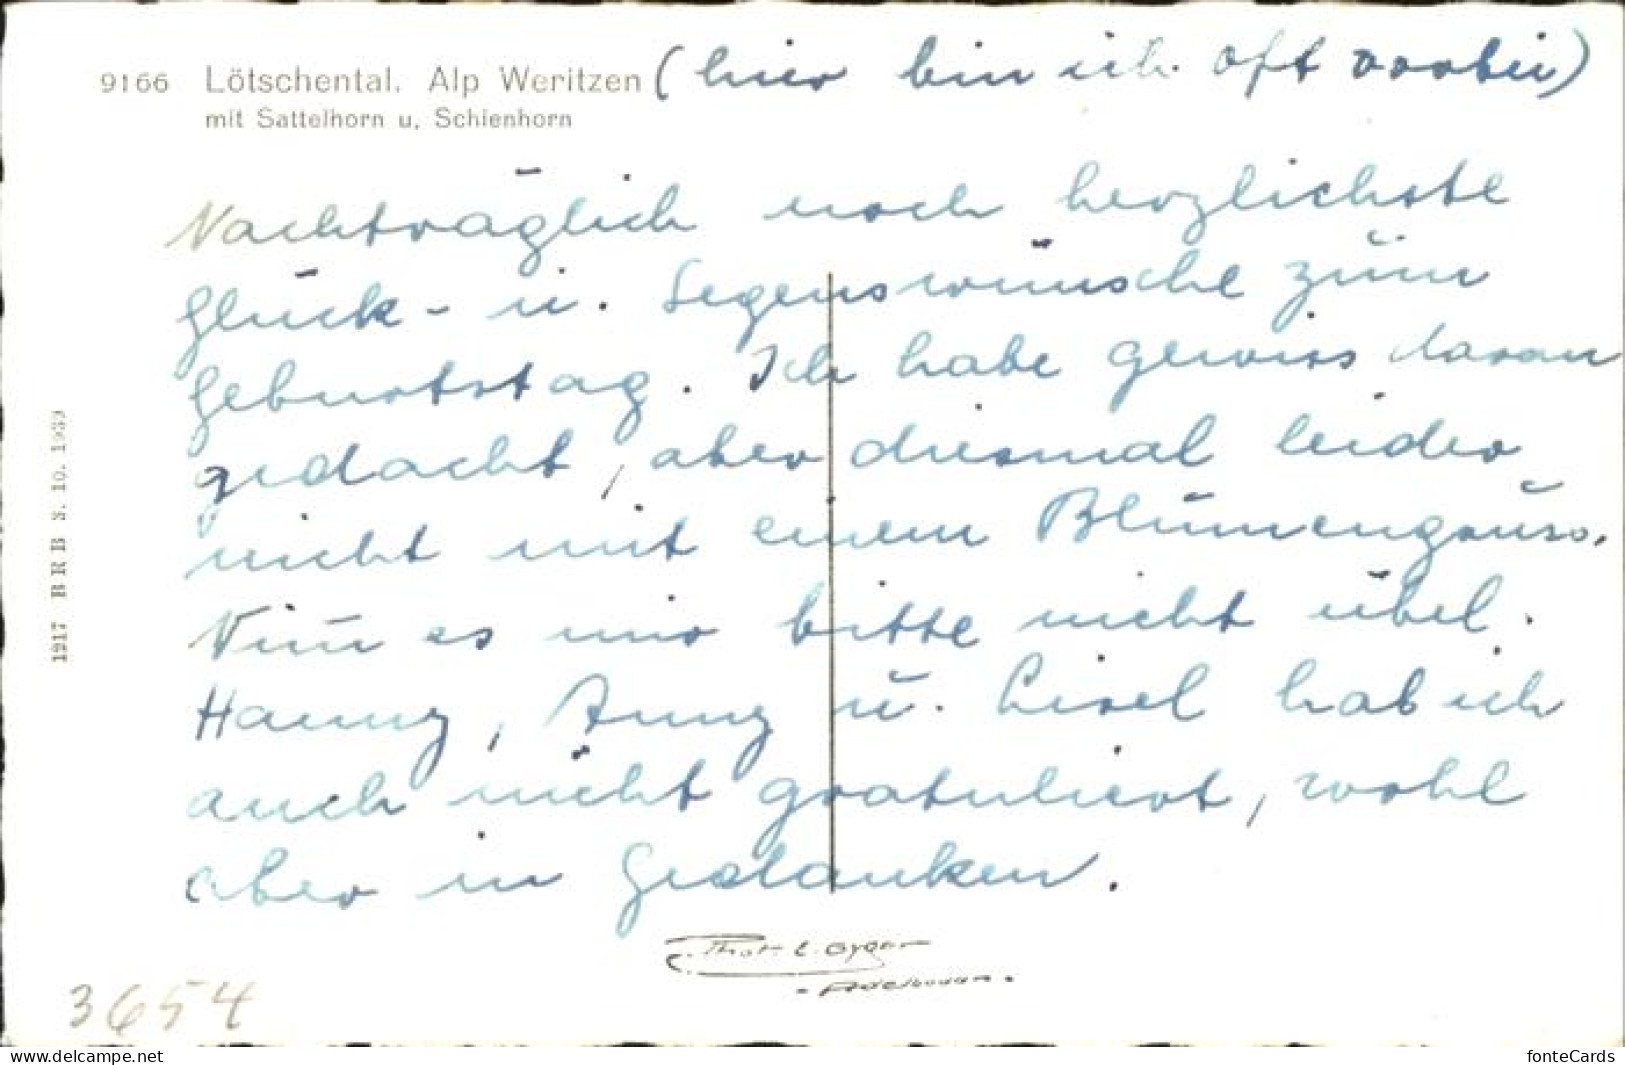 9166 Lötschental. Alp Weritzen (hier bin ich oft vorbei)
mit Sattelhorn u. Schienhorn
Nachträglich noch herzlichste
Glück- u. Segenswünsche zum
Geburtstag. Ich habe gewiss daran
gedacht, aber diesmal leider
nicht mit einem Blumengruss.
Nim es mir bitte nicht übel.
Hanny, Anny u. Lisel hab ich
auch nicht gratuliert, wohl
aber in Gedanken.
1917 BRB 3. 10. 1939
Phot. E. Gyger
- Adelboden -
3654
delcampe.net
fonteCards